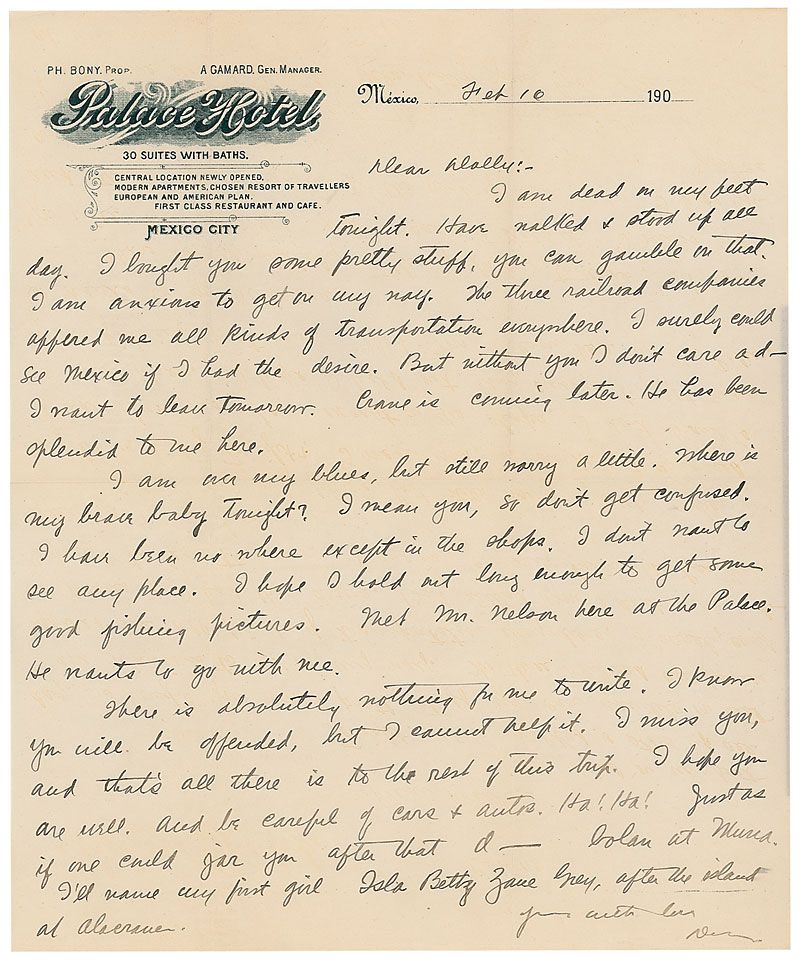 PH. BONY. PROP. A GAMARD. GEN. MANAGER.
Palace Hotel.
30 SUITES WITH BATHS.
CENTRAL LOCATION NEWLY OPENED,
MODERN APARTMENTS, CHOSEN RESORT OF TRAVELLERS
EUROPEAN AND AMERICAN PLAN.
FIRST CLASS RESTAURANT AND CAFE.
MEXICO CITY
México, Feb 10 190
Dear Dolly:-
I am dead on my feet
tonight. Have walked & stood up all
day. I bought you some pretty stuff, you can gamble on that.
I am anxious to get on my way. The three railroad companies
offered me all kinds of transportation everywhere. I surely could
see Mexico if I had the desire. But without you I don't care a d—
I want to leave tomorrow. Crane is coming later. He has been
splendid to me here.
I am over my blues, but still worry a little. Where is
my brave baby tonight? I mean you, so don't get confused.
I have been no where except in the shops. I don't want to
see any place. I hope I hold out long enough to get some
good fishing pictures. Met Mr. Nelson here at the Palace.
He wants to go with me.
There is absolutely nothing for me to write. I know
you will be offended, but I cannot help it. I miss you,
and that's all there is to the rest of this trip. I hope you
are well. And be careful of cars & autos. Ha! Ha! Just as
if one could jar you after that d— at
I'll name my first girl Isla Betty Zane Grey, after the island
at Alacranes.
Yours with love